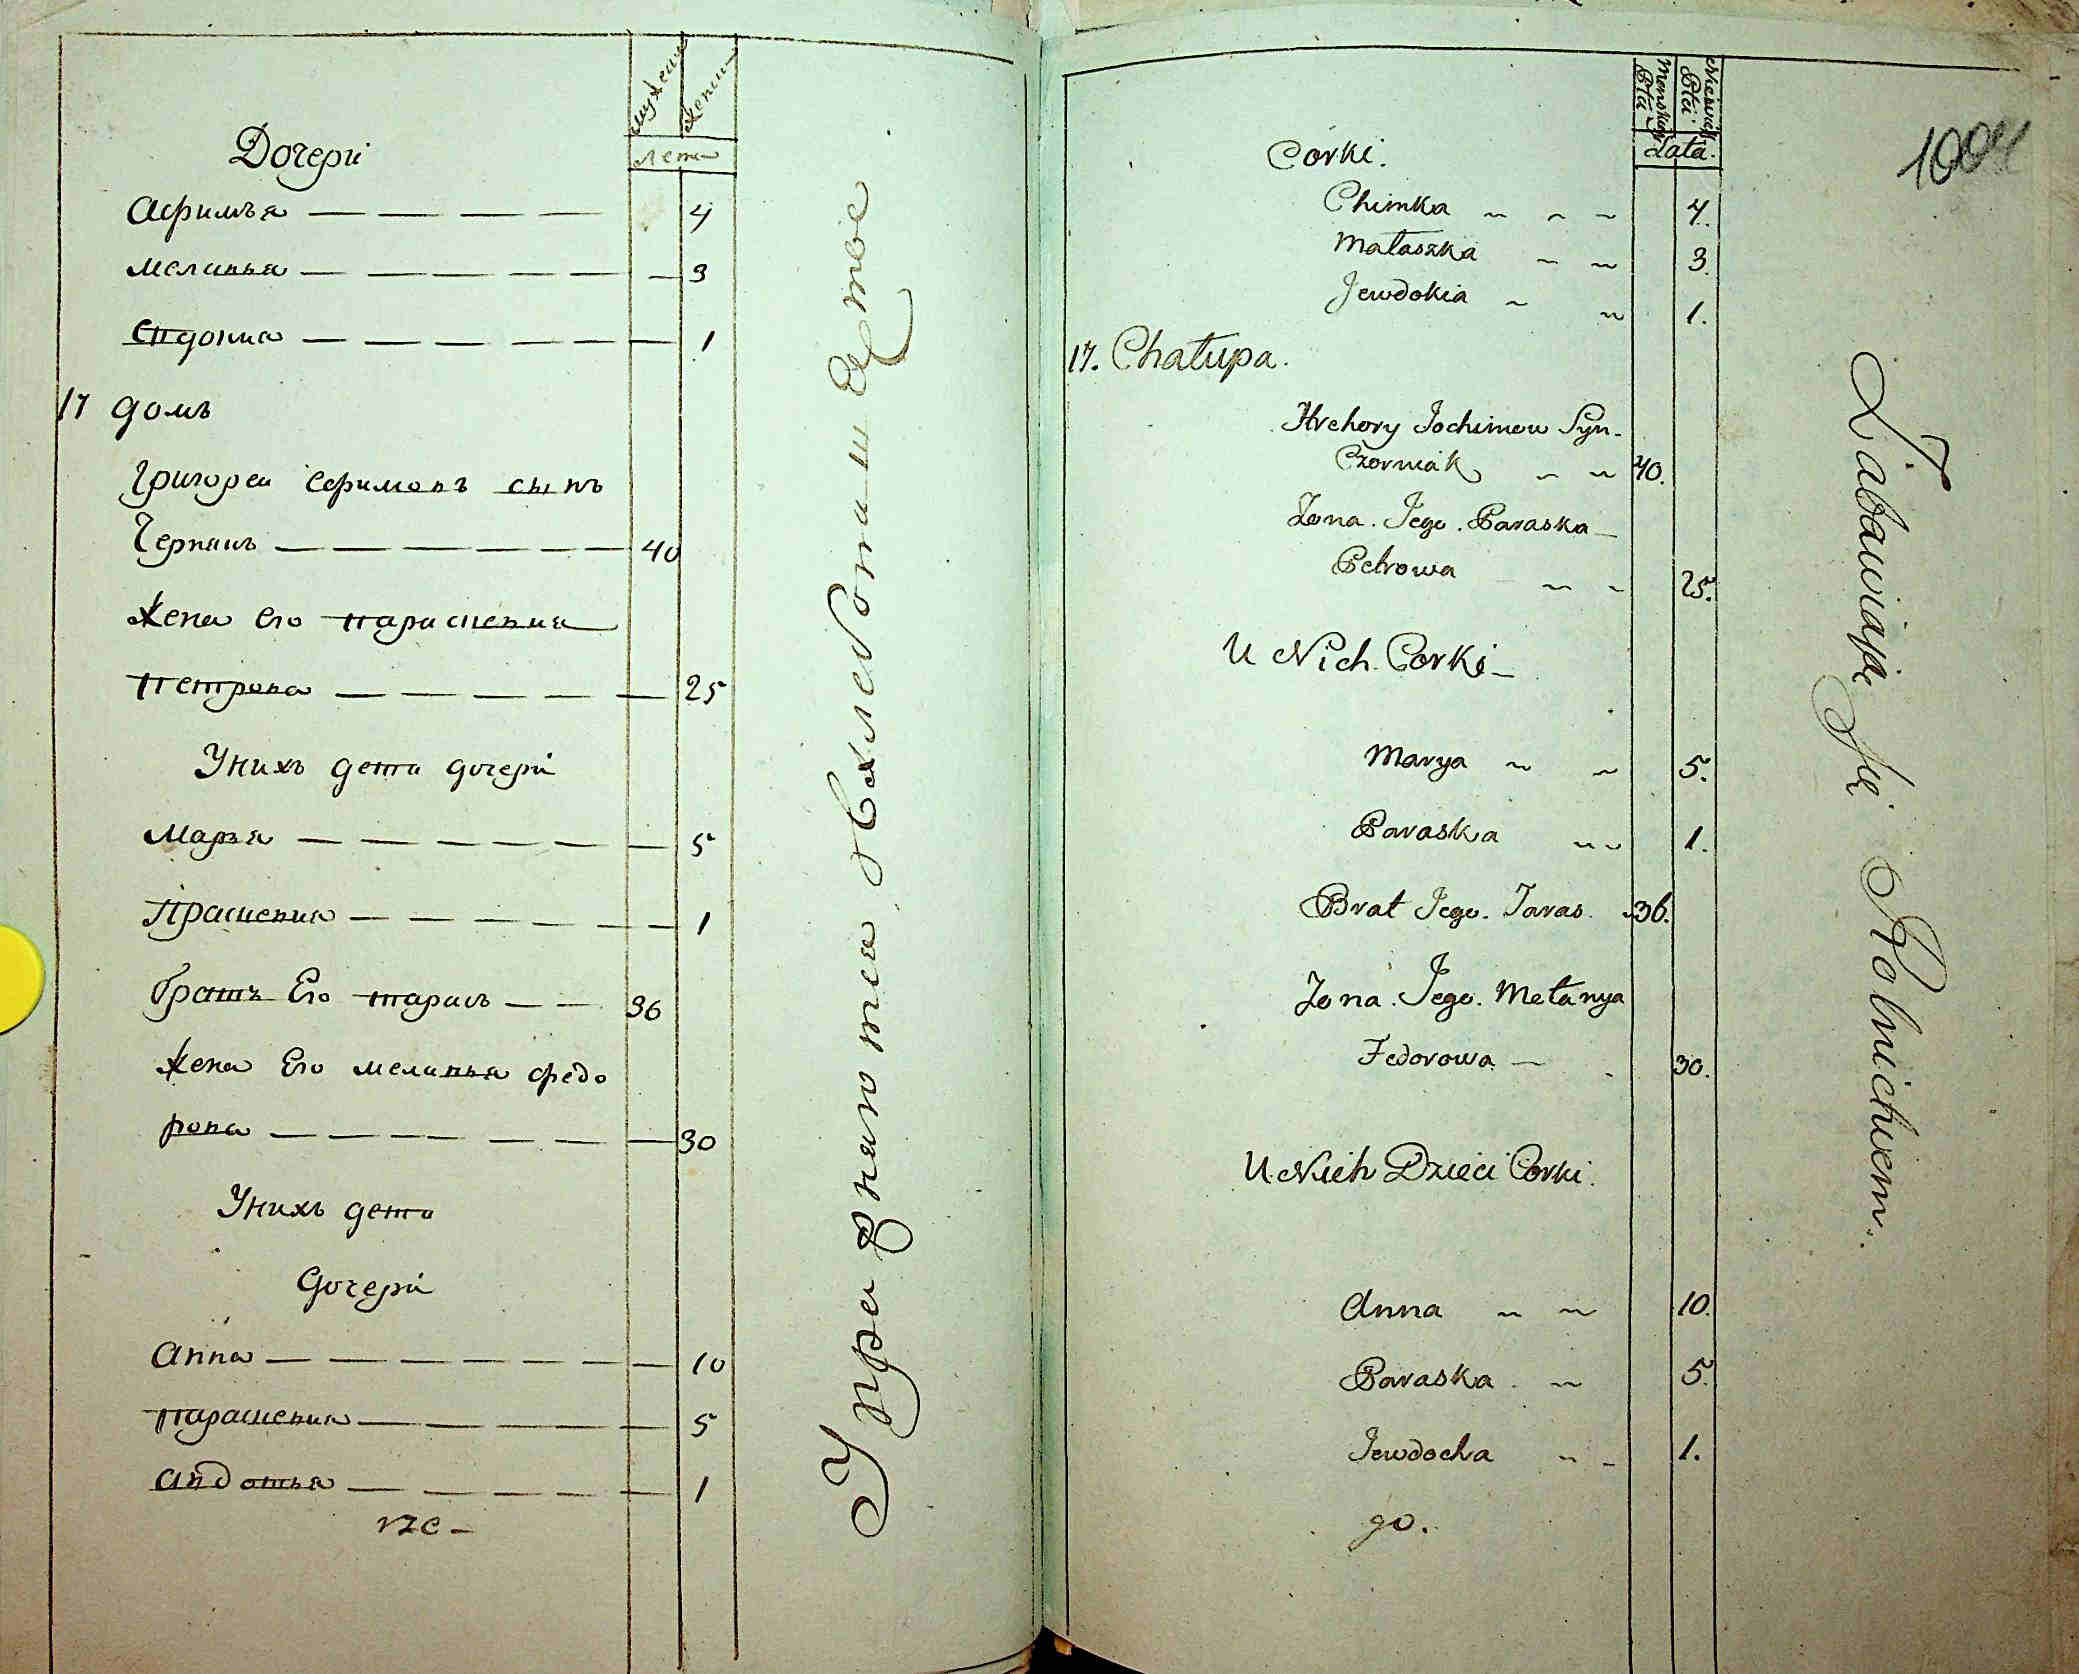 мужеска
женска
лета
Дочери
Афимья — — — — 4
Меланья — — — — — 3
Евдокиа — — — — — 1
17 домъ
Григореи Ефимовъ сынъ
Чернякъ — — — — — 40
Жена его Парасковия
Петрова — — — — — 25
У нихъ дети дочери
Марья — — — — — 5
Прасковия — — — — — 1
Братъ Его Тарасъ — — 36
Жена Его Меланья Федо
рова — — — — — 30
У нихъ дети
Дочери
Анна — — — — — 10
Парасковия — — — — 5
Авдотья — — — — 1
Упражняются в хлебопашестве
Męskiey Płci
Niewieś. Płci
Lata.
1004
Corki.
Chimka ~ ~ ~ 4.
Małaszka ~ ~ 3.
Jewdokia ~ ~ 1.
17. Chałupa.
Hrehory Jochimow Syn.
Czorniak ~ ~ 40.
Zona. Jego. Paraska
Petrowa ~ ~ 25.
U Nich. Corki
Marya ~ ~ 5.
Paraska ~ ~ 1.
Brat Jego. Taras. 36.
Zona. Jego. Mełanya
Fedorowa 30.
U. Nich Dzieci Corki.
Anna ~ ~ 10.
Paraska. ~ 5.
Jewdocha ~ ~ 1.
go.
Zabawiaią Się Rolnictwem.